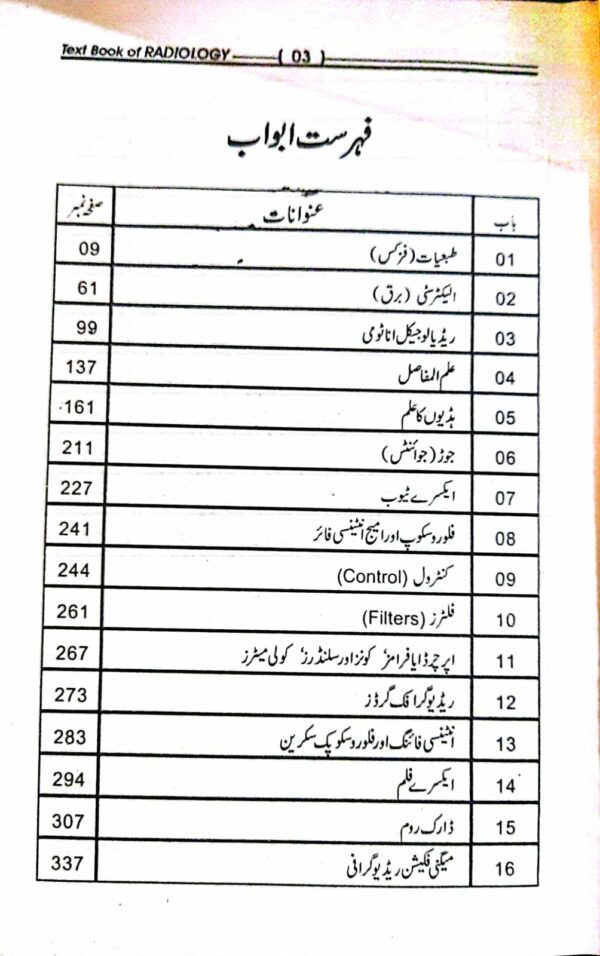 Text Book of RADIOLOGY ( 03 )
فہرست ابواب
باب عنوانات صفحہ نمبر
01 طبعیات (فزکس) 09
02 الیکٹرسٹی (برق) 61
03 ریڈیالوجیکل اناٹومی 99
04 علم المفاصل 137
05 ہڈیوں کا علم 161
06 جوڑ (جوائنٹس) 211
07 ایکسرے ٹیوب 227
08 فلوروسکوپ اور امیج انٹینسی فائر 241
09 کنٹرول (Control) 244
10 فلٹرز (Filters) 261
11 اپرچر ڈایا فرامز' کونز اور سلنڈرز' کولی میٹرز 267
12 ریڈیو گرافک گرڈز 273
13 انٹینسی فائنگ اور فلوروسکوپک سکرین 283
14 ایکسرے فلم 294
15 ڈارک روم 307
16 میگنی فکیشن ریڈیو گرافی 337